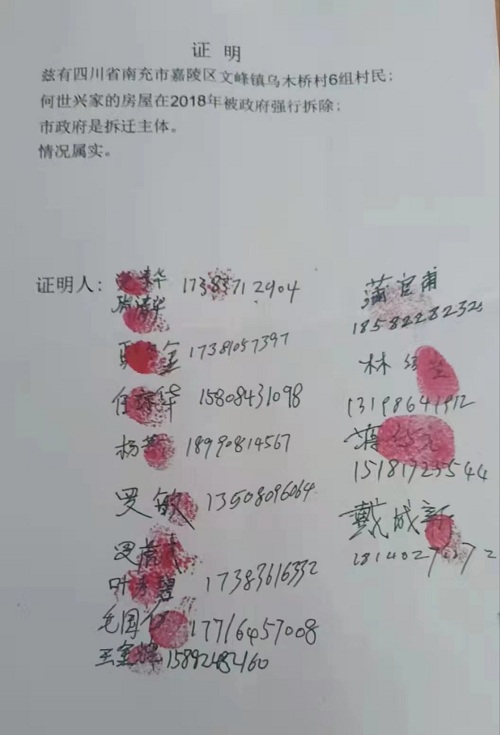 证明
兹有四川省南充市嘉陵区文峰镇乌木桥村6组村民；
何世兴家的房屋在2018年被政府强行拆除；
市政府是拆迁主体。
情况属实。
证明人：
17383712904
17381057397
15808431098
杨 18990814567
罗敏 13508096064
叶 碧 17383616332
毛国 17716457008
王金辉 15892482160
蒲官甫
18582282320
林
13198641912
15181923544
戴成新